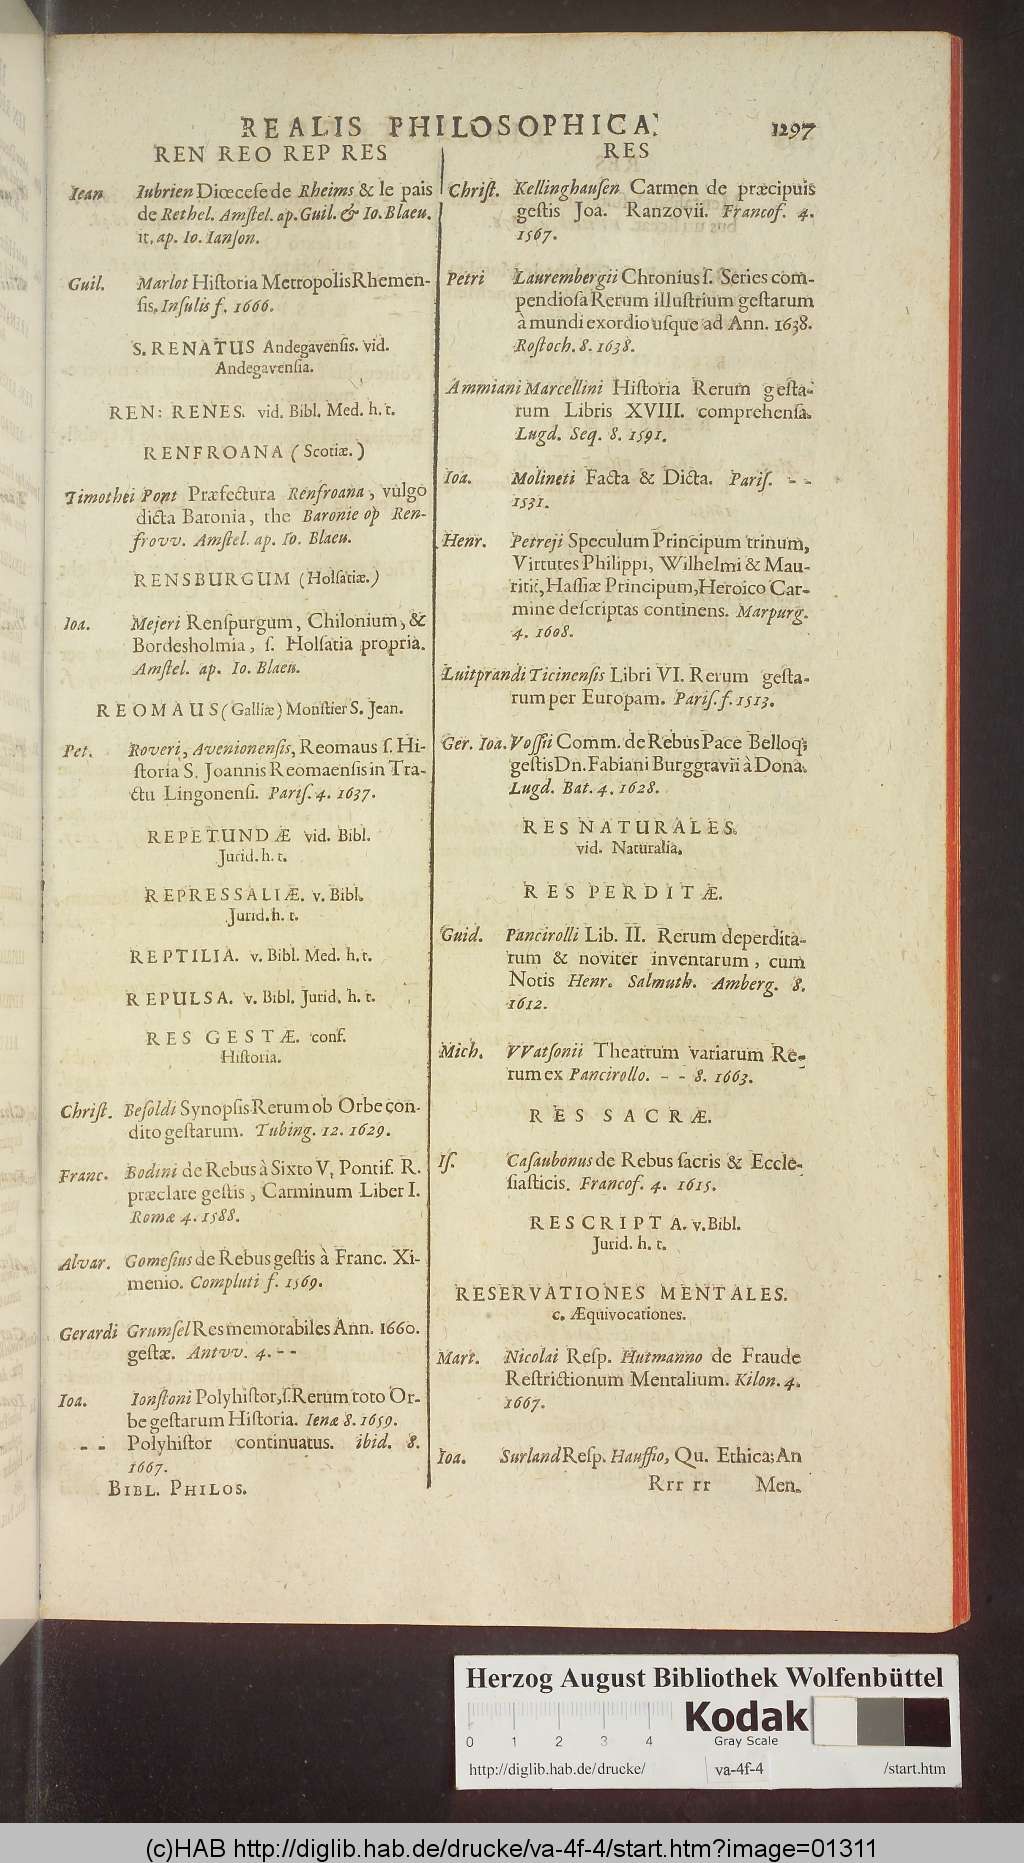 REALIS PHILOSOPHICA. 1297
REN REO REP RES
Iean Iubrien Diœceſe de Rheims & le pais
de Rethel. Amſtel. ap. Guil. & Io. Blaeu.
it. ap. Io. Ianſon.
Guil. Marlot Hiſtoria Metropolis Rhemen-
ſis. Inſulis f. 1666.
S. RENATUS Andegavenſis. vid.
Andegavenſia.
REN: RENES. vid. Bibl. Med. h. t.
RENFROANA (Scotiæ.)
Timothei Pont Præfectura Renfroana, vulgo
dicta Baronia, the Baronie op Ren-
frovv. Amſtel. ap. Io. Blaeu.
RENSBURGUM (Holſatiæ.)
Ioa. Mejeri Renſpurgum, Chilonium, &
Bordesholmia, ſ. Holſatia propria.
Amſtel. ap. Io. Blaeu.
REOMAUS (Galliæ) Monſtier S. Jean.
Pet. Roveri, Avenionenſis, Reomaus ſ. Hi-
ſtoria S. Joannis Reomaenſis in Tra-
ctu Lingonenſi. Pariſ. 4. 1637.
REPETUNDÆ vid. Bibl.
Jurid. h. t.
REPRESSALIÆ. v. Bibl.
Jurid. h. t.
REPTILIA. v. Bibl. Med. h. t.
REPULSA. v. Bibl. Jurid. h. t.
RES GESTÆ. conf.
Hiſtoria.
Chriſt. Beſoldi Synopſis Rerum ob Orbe con-
dito geſtarum. Tubing. 12. 1629.
Franc. Bodini de Rebus à Sixto V. Pontif. R.
præclare geſtis, Carminum Liber I.
Romæ 4. 1588.
Alvar. Gomeſius de Rebus geſtis à Franc. Xi-
menio. Compluti f. 1569.
Gerardi Grumſel Res memorabiles Ann. 1660.
geſtæ. Antvv. 4. - -
Ioa. Ionſtoni Polyhiſtor, ſ. Rerum toto Or-
be geſtarum Hiſtoria. Ienæ 8. 1659.
- - Polyhiſtor continuatus. ibid. 8.
1667.
BIBL. PHILOS.
RES
Chriſt. Kellinghauſen Carmen de præcipuis
geſtis Joa. Ranzovii. Francof. 4.
1567.
Petri Laurembergii Chronius ſ. Series com-
pendioſa Rerum illuſtrium geſtarum
à mundi exordio uſque ad Ann. 1638.
Roſtoch. 8. 1638.
Ammiani Marcellini Hiſtoria Rerum geſta-
rum Libris XVIII. comprehenſa.
Lugd. Seq. 8. 1591.
Ioa. Molineti Facta & Dicta. Pariſ. - -
1531.
Henr. Petreji Speculum Principum trinum,
Virtutes Philippi, Wilhelmi & Mau-
ritii, Haſſiæ Principum, Heroico Car-
mine deſcriptas continens. Marpurg.
4. 1608.
Luitprandi Ticinenſis Libri VI. Rerum geſta-
rum per Europam. Pariſ. f. 1513.
Ger. Ioa. Voſſii Comm. de Rebus Pace Belloq;
geſtis Dn. Fabiani Burggravii à Dona.
Lugd. Bat. 4. 1628.
RES NATURALES.
vid. Naturalia.
RES PERDITÆ.
Guid. Pancirolli Lib. II. Rerum deperdita-
rum & noviter inventarum, cum
Notis Henr. Salmuth. Amberg. 8.
1612.
Mich. VVatſonii Theatrum variarum Re-
rum ex Pancirollo. - - 8. 1663.
RES SACRÆ.
Iſ. Caſaubonus de Rebus ſacris & Eccle-
ſiaſticis. Francof. 4. 1615.
RESCRIPTA. v. Bibl.
Jurid. h. t.
RESERVATIONES MENTALES.
c. Æquivocationes.
Mart. Nicolai Reſp. Hutmanno de Fraude
Reſtrictionum Mentalium. Kilon. 4.
1667.
Ioa. Surland Reſp. Hauffio, Qu. Ethica; An
Rrr rr Men.
Herzog August Bibliothek Wolfenbüttel
Kodak
Gray Scale
0 1 2 3 4
http://diglib.hab.de/drucke/ va-4f-4 /start.htm
(c)HAB http://diglib.hab.de/drucke/va-4f-4/start.htm?image=01311